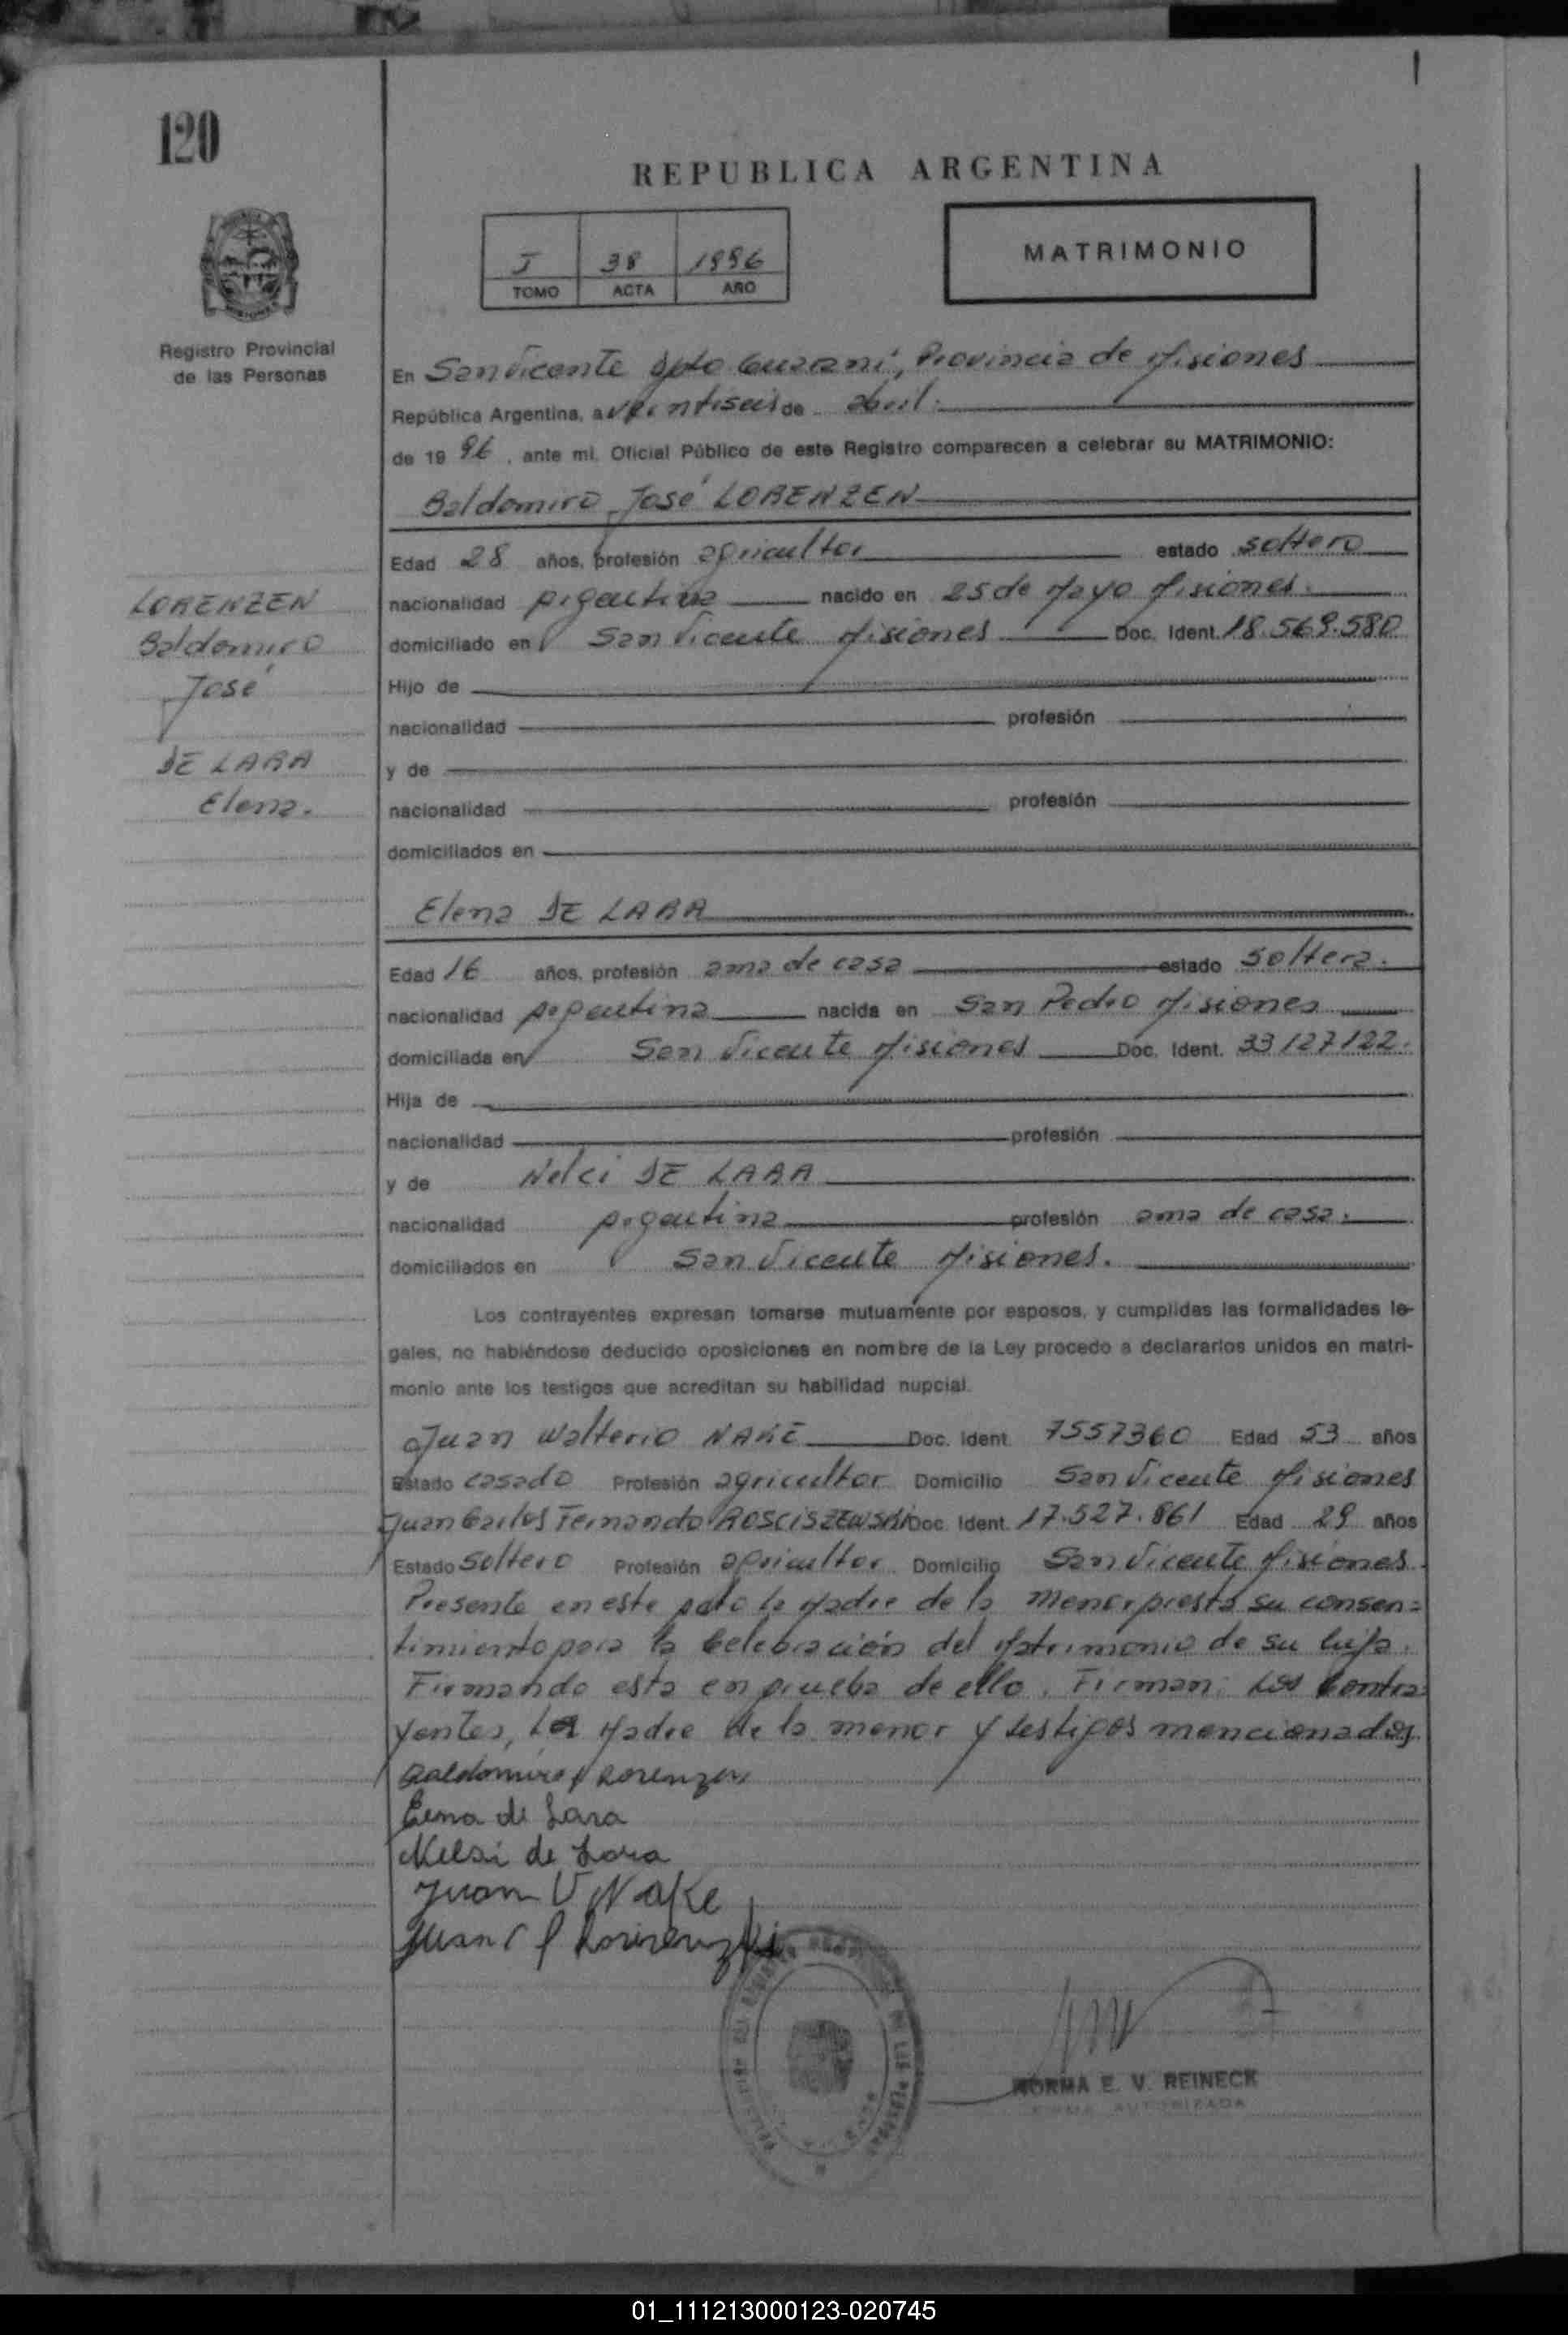 120
REPUBLICA ARGENTINA
I 38 1996
TOMO ACTA AÑO
MATRIMONIO
Registro Provincial
de las Personas
En San Vicente Dpto Guaraní, Provincia de Misiones
República Argentina, a veintiseis de abril.
de 19 96, ante mi, Oficial Público de este Registro comparecen a celebrar su MATRIMONIO:
Baldomiro José LORENZEN
Edad 28 años, profesión agricultor estado soltero
nacionalidad Argentina nacido en 25 de Mayo Misiones.
domiciliado en San Vicente Misiones Doc. Ident. 18.569.580
Hijo de
nacionalidad profesión
y de
nacionalidad profesión
domiciliados en
LORENZEN
Baldomiro
José
DE LARA
Elena.
Elena DE LARA
Edad 16 años, profesión ama de casa estado soltera.
nacionalidad Argentina nacida en San Pedro Misiones
domiciliada en San Vicente Misiones Doc. Ident. 33127122.
Hija de
nacionalidad profesión
y de Nelci DE LARA
nacionalidad Argentina profesión ama de casa.
domiciliados en San Vicente Misiones.
Los contrayentes expresan tomarse mutuamente por esposos, y cumplidas las formalidades le-
gales, no habiéndose deducido oposiciones en nombre de la Ley procedo a declararlos unidos en matri-
monio ante los testigos que acreditan su habilidad nupcial.
Juan Walterio NAKE Doc. Ident. 7557360 Edad 53 años
Estado casado Profesión agricultor Domicilio San Vicente Misiones
Juan Carlos Fernando ROSCISZEWSKI Doc. Ident. 17.527.861 Edad 29 años
Estado Soltero Profesión agricultor Domicilio San Vicente Misiones.
Presente en este acto la Madre de la menor presta su consen=
timiento para la Celebración del Matrimonio de su hija.
Firmando esta en prueba de ello. Firman: Los Contra=
yentes, La Madre de la menor y testigos mencionados
Baldomiro J Lorenzen
Elena de Lara
Nelsi de Lara
Juan W Nake
Juan C F
NORMA E. V. REINECK
FIRMA AUTORIZADA
01_111213000123-020745